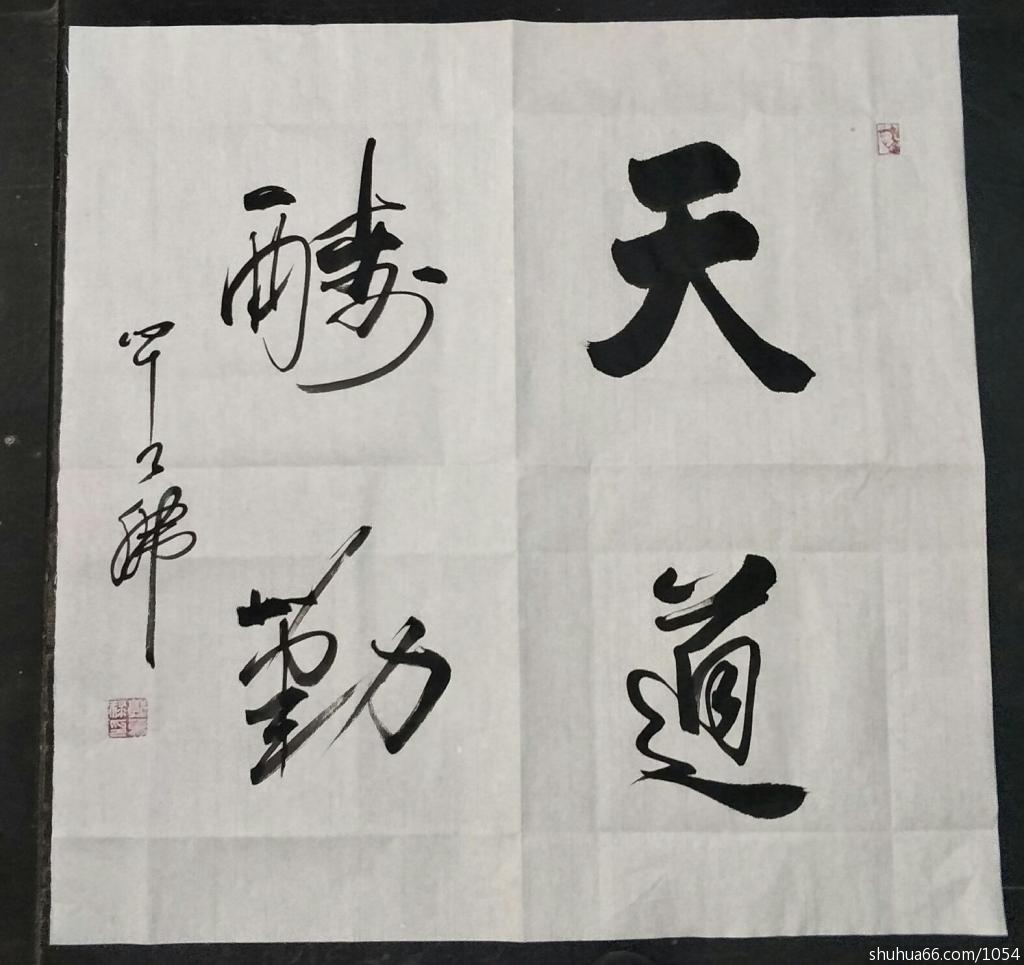 天道
酬勤
shuhua66.com/1054